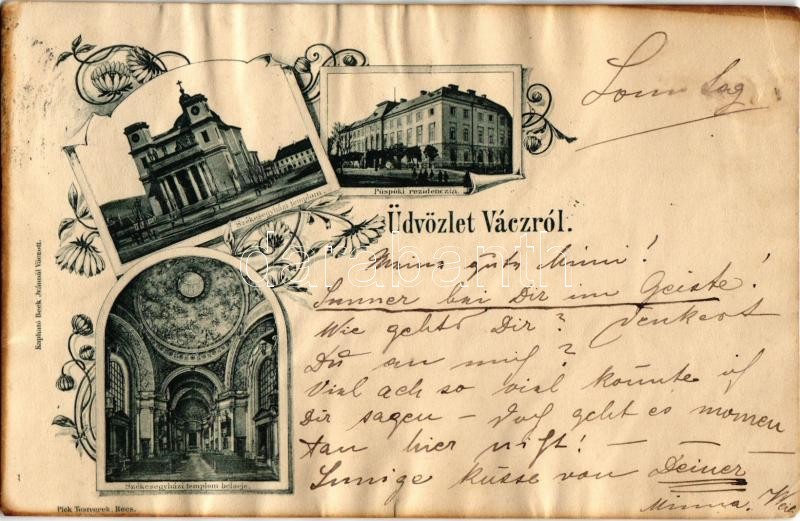 Sonntag
Székesegyházi templom.
Püspöki rezidenczia.
Üdvözlet Váczról.
Meine gute Mimi!
Immer bei Dir im Geiste!
Wie gehts Dir? Denkest
Du an mich?
Viel ach so viel könnte ich
Dir sagen – doch geht es momen
tan hier nicht! — — —
Innige Küsse von Deiner
Minna.
Székesegyházi templom belseje.
Kapható Beck Jránnál Váczott.
1
Pick Testverek, Becs.
darabanth